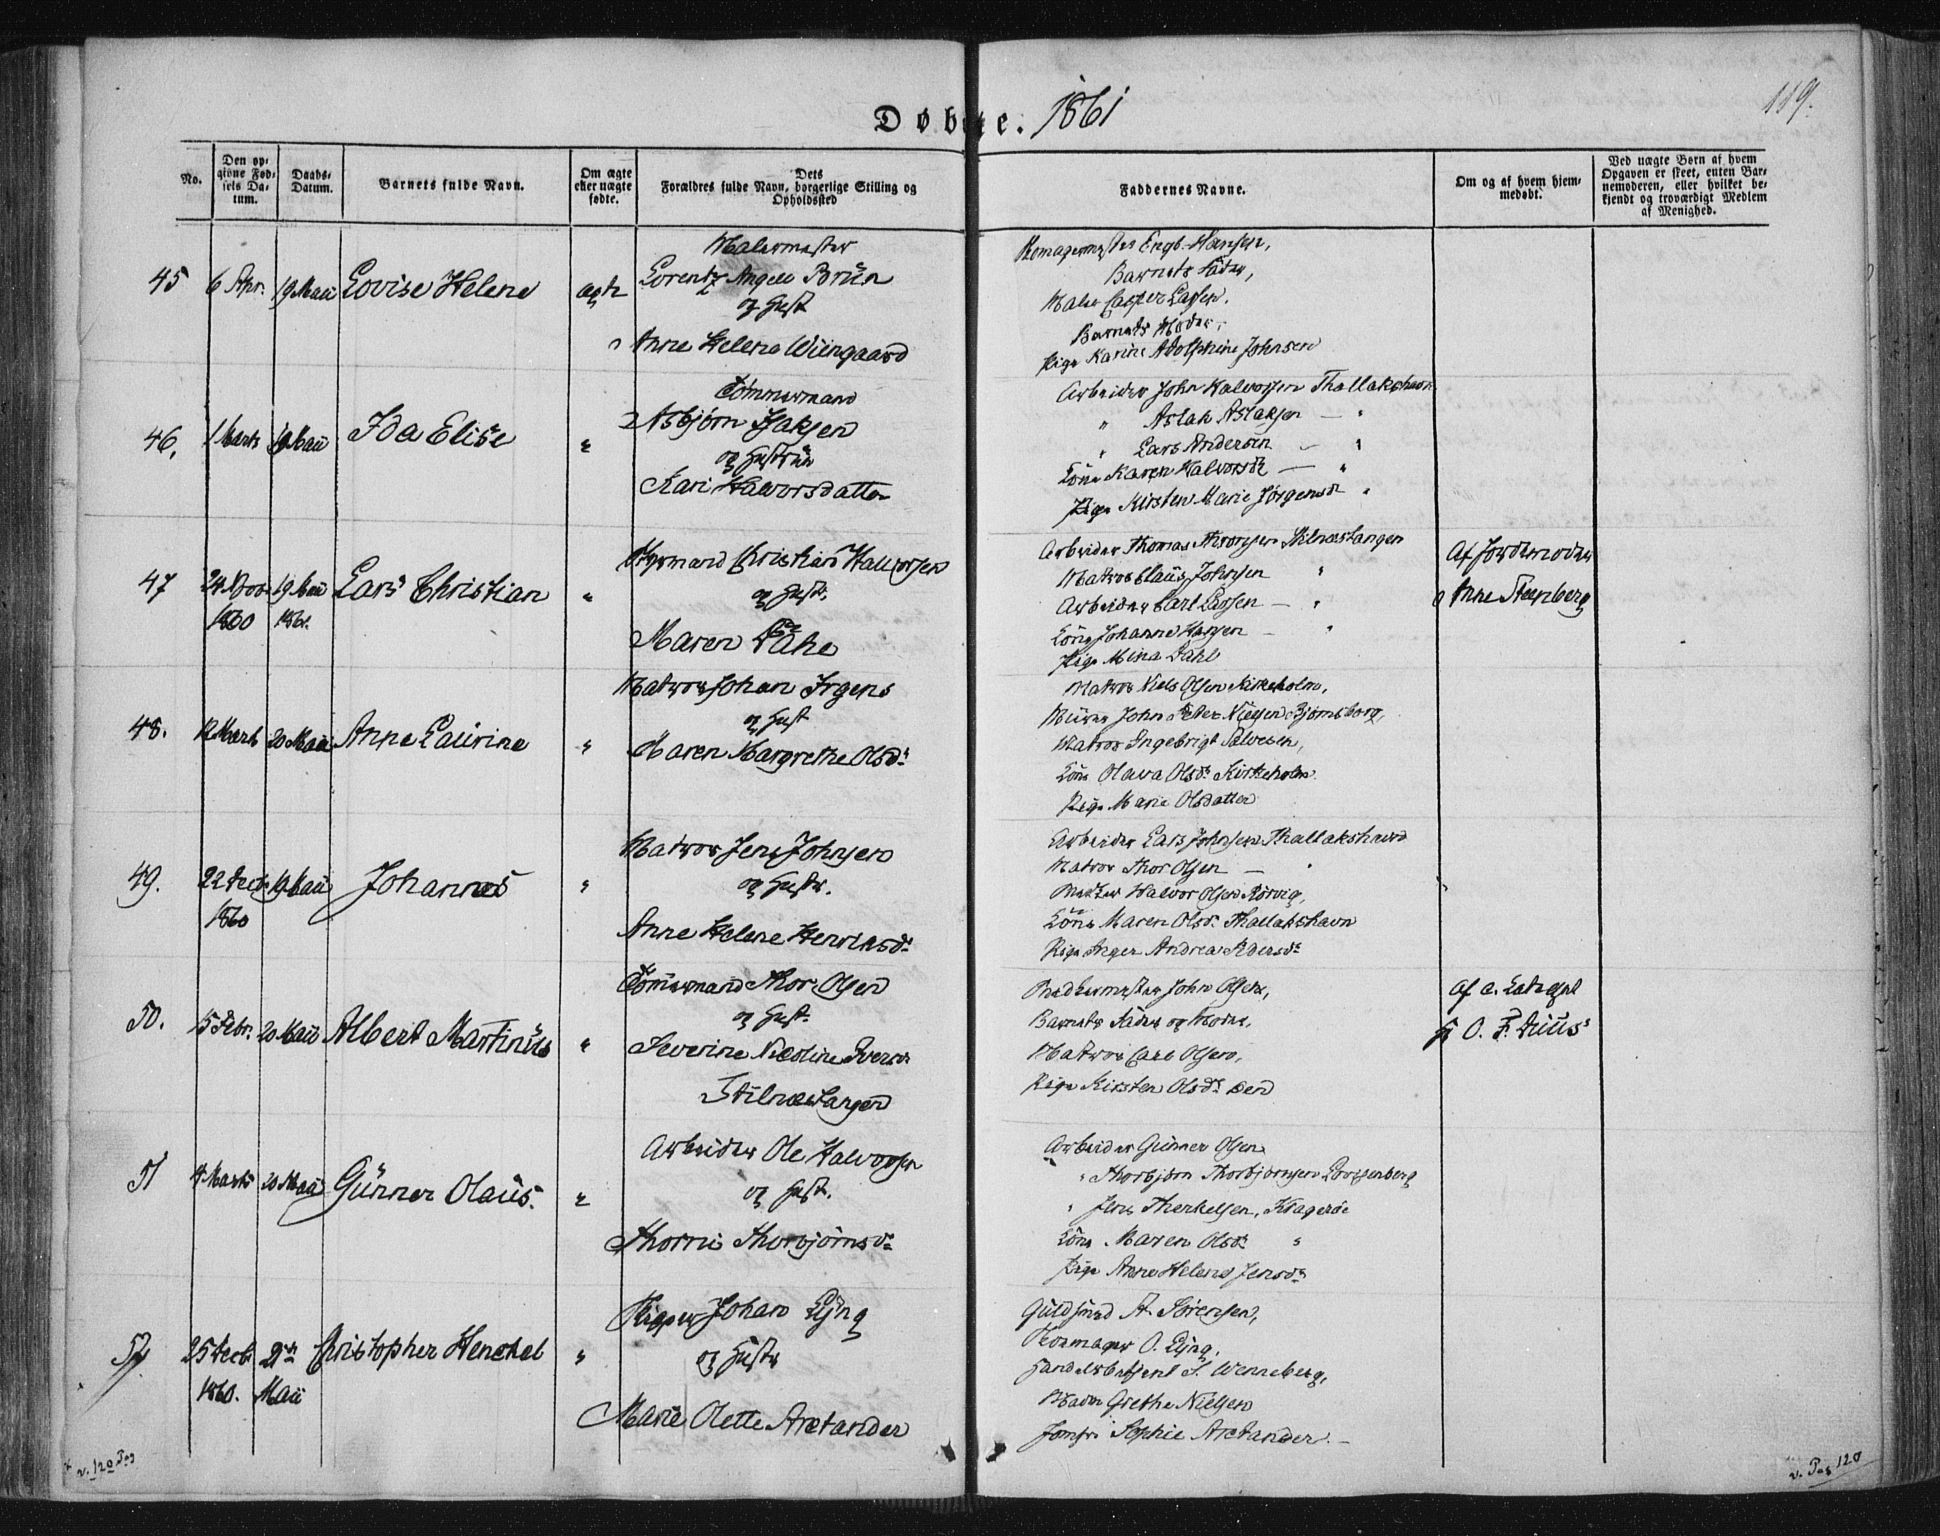 Døbte. 1861
119.
No.
Den opgivne Fødsels Datum.
Daabs-Datum.
Barnets fulde Navn.
Om ægte eller uægte fødte.
Dets Forældres fulde Navn, borgerlige Stilling og Opholdssted
Faddernes Navne.
Om og af hvem hjemmedøbt.
Ved uægte Børn af hvem Opgaven er skeet, enten Barnemoderen, eller hvilket bekjendt og troværdigt Medlem af Menighed.
45 6 Apr. 19 Maii Lovise Helene ægte
Malermester
Lorentz Angell Brün
og Hust
Anne Helene Wiingaard
Engb. Hansen,
Barnets Fader,
Maler Casper Lassen.
Barnets Moder,
Pige Karine Adolphine Johnsen
46. 1 Marts 19 Maii Ida Elise "
Tømmermand
Asbjørn Isaksen
og Hustrue
Kari Halvorsdatter
Arbeider John Halvorsen Thallakshavn
" Aslak Aslaksen — "
" Lars Andersen — "
Kone Karen Halvorsdr — "
Pige Kirsten Marie Jørgensdr "
47 24 Nov. 1860 19 Maii 1861. Lars Christian "
Styrmand Christian Halvorsen
og Hust.
Maren
Arbeider Thomas Stilnæstangen
Matros Claus Johnsen "
Arbeider Carl Lassen — "
Kone Johanne Hansen — "
Pige Mina Dahl
Af Jordemoder
Anne Steenberg
48. 12 Marts 20 Maii Anne Laurine "
Matros Johan Irgens
og Hust
Maren Margrethe Olsdr
Matros Niels Olsen Kirkeholm,
Murer John Peter Nielsen Bjørnsborg,
Matros Engebrigt Salvesen,
Kone Olava Olsdr Kirkeholm
Pige Marie Olsdatter
49. 22 Decb 1860 19 Maii Johannes "
Matros Jens Johnsen
og Hustr.
Anne Helene Henriksdr
Arbeider Lars Johnsen Thallakshavn
Matros Thor Olsen — "
Halvor Olsen Rørvig,
Kone Maren Olsdr Thallakshavn
Pige Inger Andrea
50. 15 Febr. 20 Maii Albert Martinus "
Tømmermand Thor Olsen
og Hust.
Severine Nicoline Iversdr
Stilnæstangen
John Olsen,
Barnets Fader og Moder,
Matros Carl Olsen,
Pige Kirsten Olsdr
af
O. F. Duus
51 4 Marts 20 Maii Gunner Olaus. "
Arbeider Ole Halvorsen
og Hust.
Thorni Thorbjørnsdr
Arbeider Gunner Olsen
" Thorbjørn Thorbjørnsen
" Jens Therkelsen, Kragerøe
Kone Maren Olsdr "
Pige Anne Helene Jensdr
52. 25 Decb 1860. 21de Maii Christopher Henckel "
Skipper Johan Lÿng
og Hustr
Marie Olette Arctander
Guldsmed A. Sørensen,
O. Lÿng,
Handelsbetjent S. Wenneberg,
Madm Grethe Nielsen
Jomfru Sophie Arctander. —
v. 120 Pag
v. Pag 120